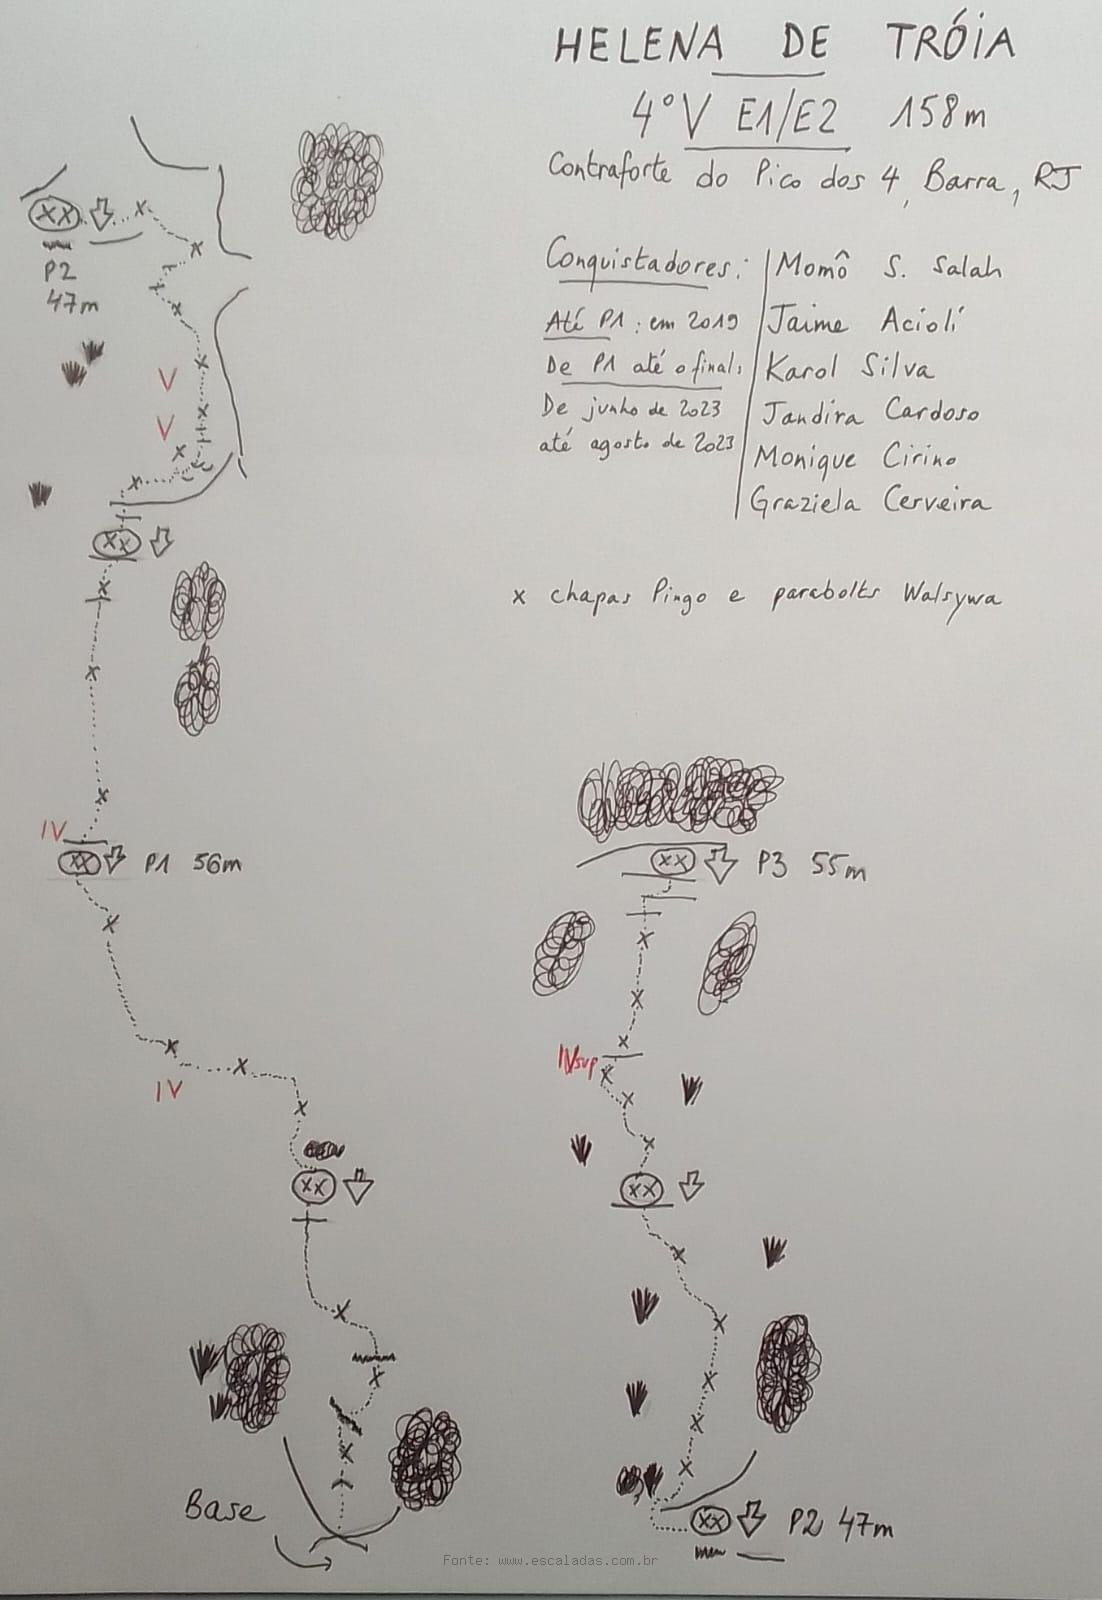 HELENA DE TRÓIA
4º V E1/E2 158m
Contraforte do Pico dos 4, Barra, RJ
Conquistadores:
Até P1: em 2019
De P1 até o final:
De junho de 2023
até agosto de 2023
Momô S. Salah
Jaime Acioli
Karol Silva
Jandira Cardoso
Monique Cirino
Graziela Cerveira
x chapas Pingo e parabolts Walsywa
XX
P2
47m
V
V
XX
IV
XX P1 56m
IV
XX
Base
XX P3 55m
IVsup
XX
XX P2 47m
Fonte: www.escaladas.com.br